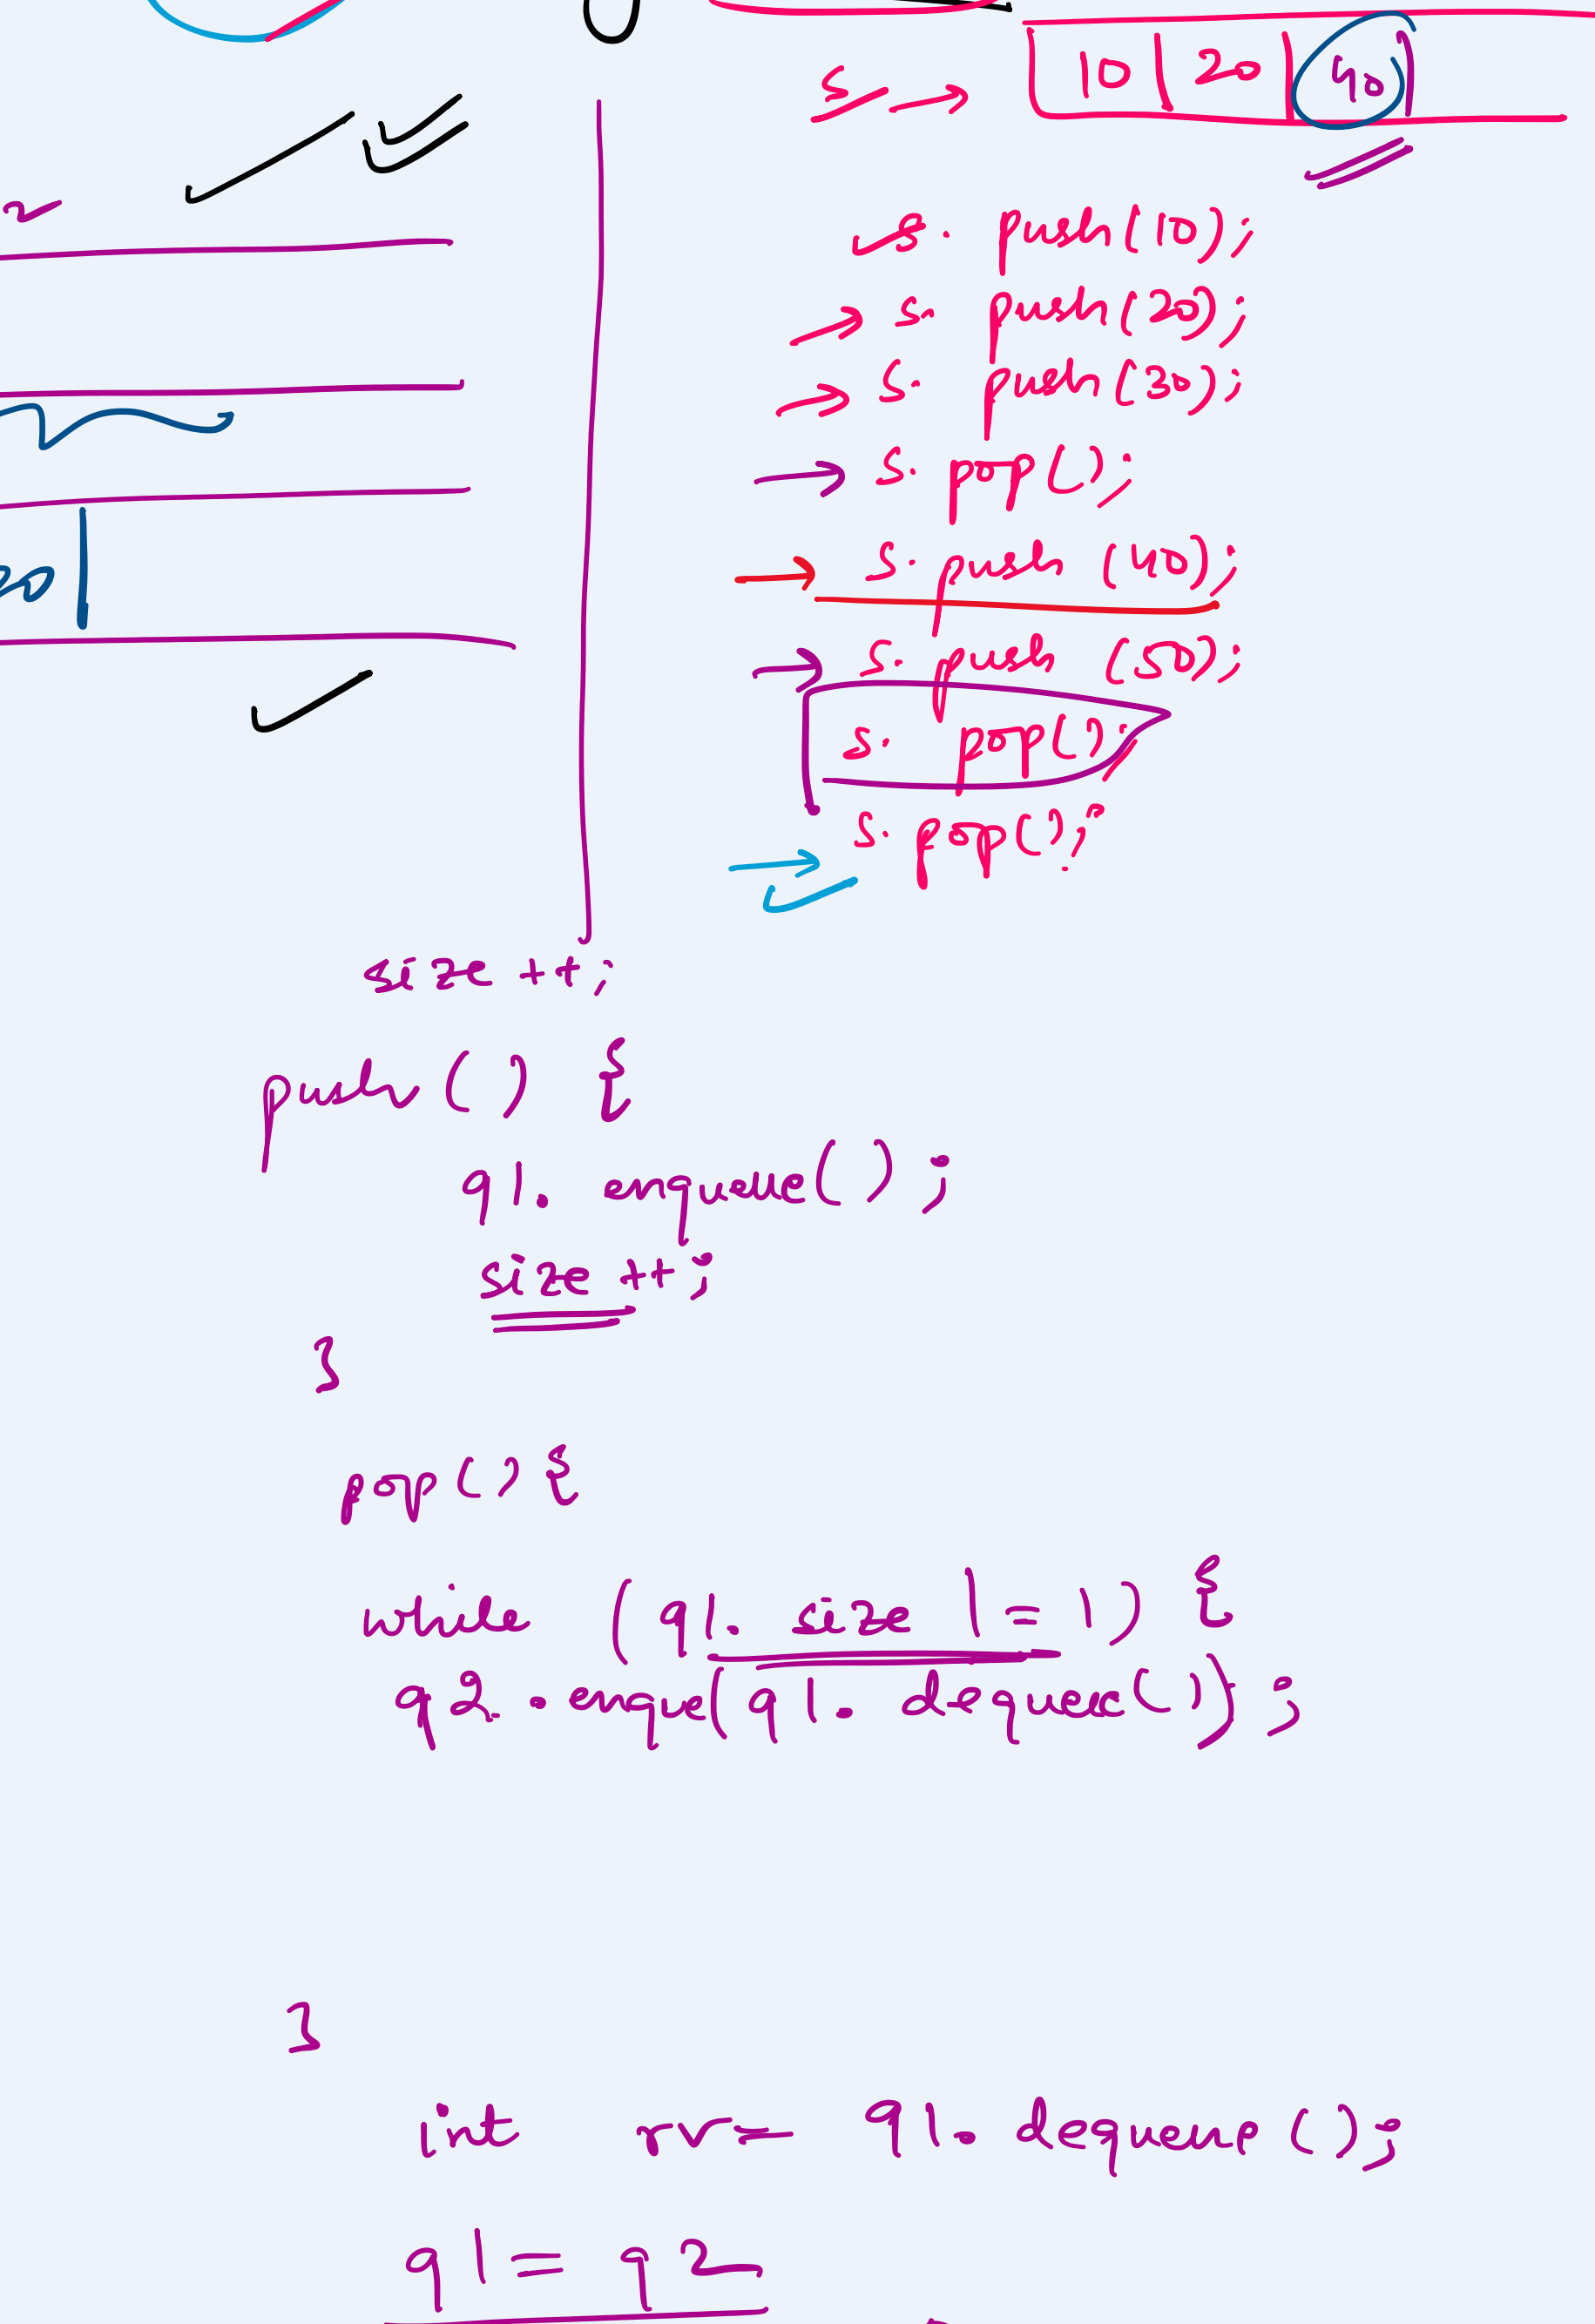 S → 10 | 20 | 40
s. push(10);
→ s. push(20);
→ s. push(30);
→ s. pop();
→ s. push(40);
→ s. push(50);
s. pop();
→ s. pop();
size ++;
push() {
q1. enqueue();
size ++;
}
pop() {
while (q1. size != 1) {
q2. enque(q1. dequeue());
}
int rv= q1. dequeue();
q1 = q2